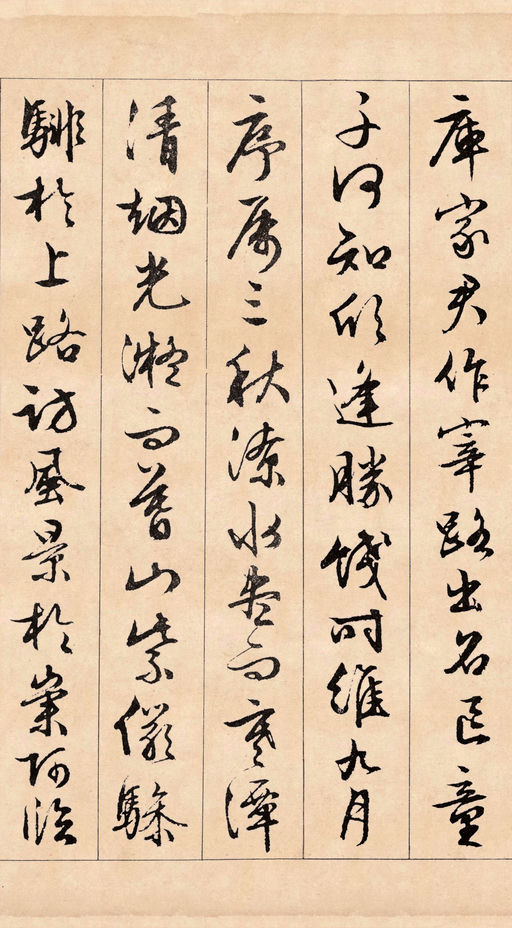 庫家君作宰路出名區童
子何知欣逢勝餞时維九月
序属三秋潦水尽而寒潭
清烟光凝而暮山紫儼驂
騑於上路訪風景於崇阿臨